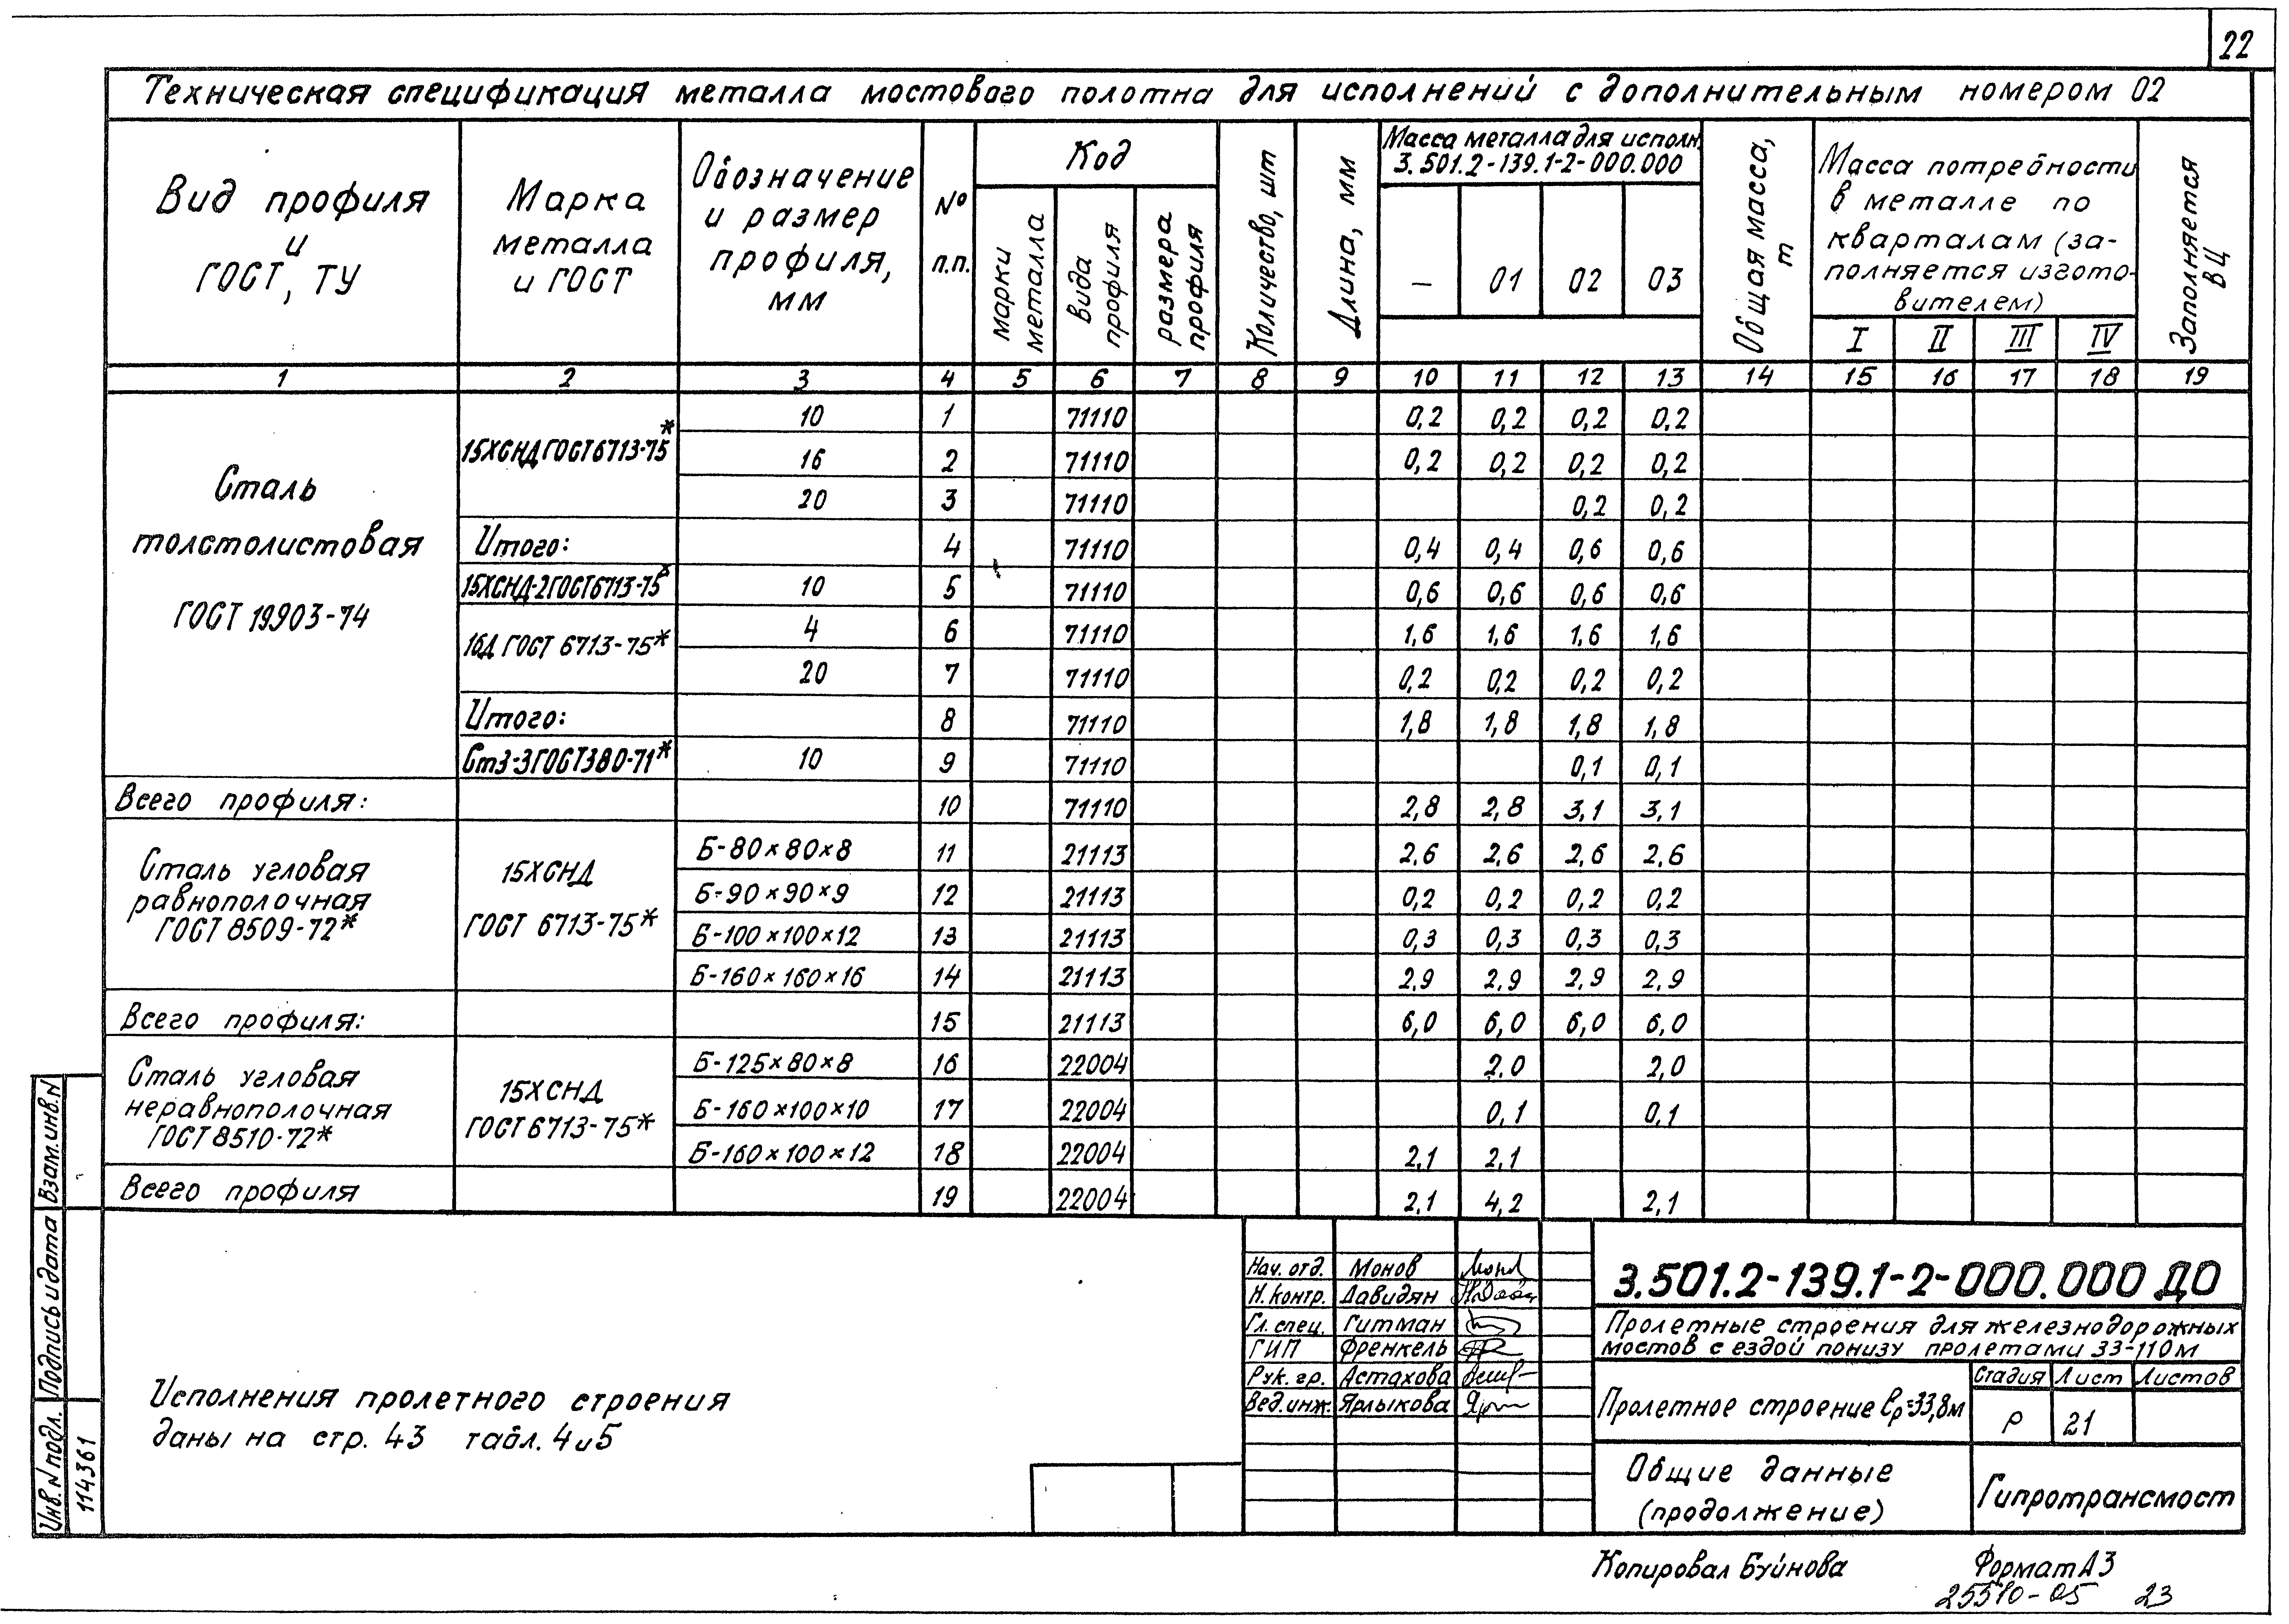 22
Техническая спецификация металла мостового полотна для исполнений с дополнительным номером 02
Вид профиля и ГОСТ, ТУ
Марка металла и ГОСТ
Обозначение и размер профиля, мм
№ п.п.
Код
марки металла
вида профиля
размера профиля
Количество, шт
Длина, мм
Масса металла для исполн. 3.501.2-139.1-2-000.000
— 01 02 03
Общая масса, т
Масса потребности в металле по кварталам (заполняется изготовителем)
I II III IV
Заполняется ВЦ
1 2 3 4 5 6 7 8 9 10 11 12 13 14 15 16 17 18 19
Сталь толстолистовая ГОСТ 19903-74
15ХСНД ГОСТ 6713-75*
10 1 71110 0,2 0,2 0,2 0,2
16 2 71110 0,2 0,2 0,2 0,2
20 3 71110 0,2 0,2
Итого: 4 71110 0,4 0,4 0,6 0,6
15ХСНД-2 ГОСТ 6713-75* 10 5 71110 0,6 0,6 0,6 0,6
16Д ГОСТ 6713-75*
4 6 71110 1,6 1,6 1,6 1,6
20 7 71110 0,2 0,2 0,2 0,2
Итого: 8 71110 1,8 1,8 1,8 1,8
Ст3-3 ГОСТ 380-71* 10 9 71110 0,1 0,1
Всего профиля: 10 71110 2,8 2,8 3,1 3,1
Сталь угловая
равнополочная
ГОСТ 8509-72*
15ХСНД
ГОСТ 6713-75*
Б-80×80×8 11 21113 2,6 2,6 2,6 2,6
Б-90×90×9 12 21113 0,2 0,2 0,2 0,2
Б-100×100×12 13 21113 0,3 0,3 0,3 0,3
Б-160×160×16 14 21113 2,9 2,9 2,9 2,9
Всего профиля: 15 21113 6,0 6,0 6,0 6,0
Сталь угловая
неравнополочная
ГОСТ 8510-72*
15ХСНД
ГОСТ 6713-75*
Б-125×80×8 16 22004 2,0 2,0
Б-160×100×10 17 22004 0,1 0,1
Б-160×100×12 18 22004 2,1 2,1
Всего профиля 19 22004 2,1 4,2 2,1
Исполнения пролетного строения
даны на стр. 43 табл. 4 и 5
Нач. отд. Монов
Н. контр. Давидян
Гл. спец. Гитман
ГИП Френкель
Рук. гр. Астахова
Вед. инж. Ярлыкова
3.501.2-139.1-2-000.000 ДО
Пролетные строения для железнодорожных
мостов с ездой понизу пролетами 33-110м
Пролетное строение ℓр=33,8м
Стадия Лист Листов
Р 21
Общие данные
(продолжение)
Гипротрансмост
Взам. инв. N
Подпись и дата
Инв. N подл.
114361
Копировал Буйнова
Формат А3
25570-05 23